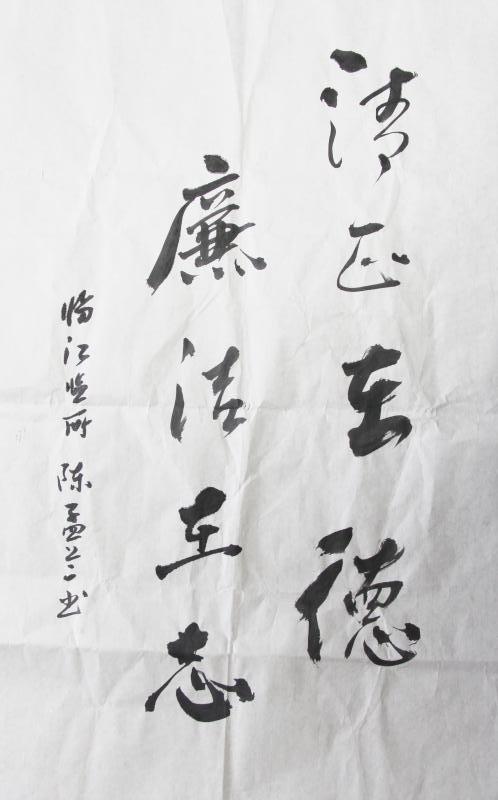 清正在德
廉洁在志
临江监所 陈孟兰书